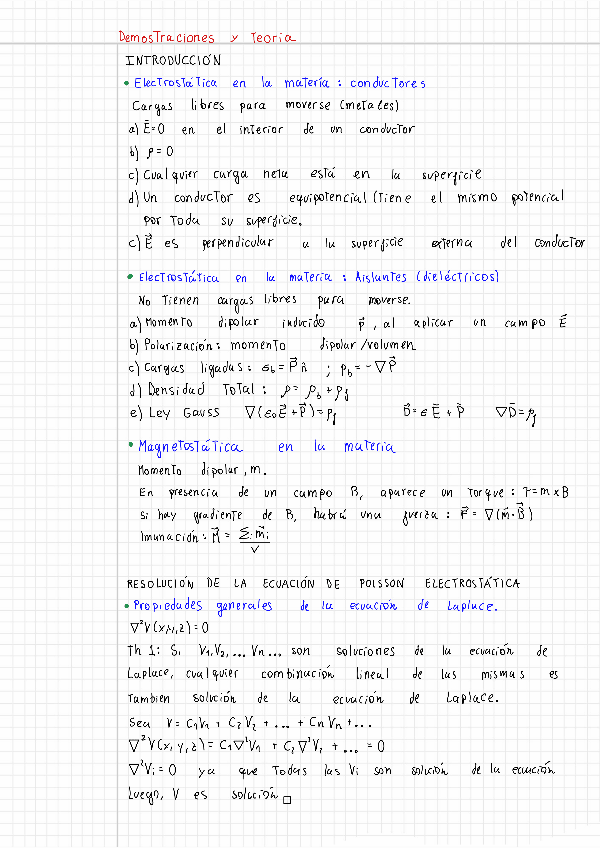 Demostraciones y Teoría
INTRODUCCIÓN
• Electrostática en la materia : conductores
Cargas libres para moverse (metales)
a) E⃗=0 en el interior de un conductor
b) ρ=0
c) Cualquier carga neta está en la superficie
d) Un conductor es equipotencial (Tiene el mismo potencial
por toda su superficie.
c) E⃗ es perpendicular a la superficie externa del conductor
• Electrostática en la materia : Aislantes (dieléctricos)
No tienen cargas libres para moverse.
a) Momento dipolar inducido p⃗, al aplicar un campo E⃗
b) Polarización: momento dipolar/volumen
c) Cargas ligadas: σb = P⃗ n̂ ; ρb = -∇P⃗
d) Densidad Total: ρ = ρb + ρf
e) Ley Gauss ∇(ε₀E⃗ + P⃗) = ρf D⃗ = εE⃗ + P⃗ ∇D⃗ = ρf
• Magnetostática en la materia
Momento dipolar, m.
En presencia de un campo B, aparece un torque: τ = m × B
Si hay gradiente de B, habrá una fuerza: F⃗ = ∇(m⃗·B⃗)
Imanación: M⃗ = Σ m⃗i / V
RESOLUCIÓN DE LA ECUACIÓN DE POISSON ELECTROSTÁTICA
• Propiedades generales de la ecuación de Laplace.
∇²V(x,y,z)=0
Th 1: Si V1, V2, ... Vn ..., son soluciones de la ecuación de
Laplace, cualquier combinación lineal de las mismas es
Tambien solución de la ecuación de Laplace.
Sea V = C1V1 + C2V2 + ... + CnVn + ...
∇²V(x,y,z) = C1∇²V1 + C2∇²V2 + ... = 0
∇²Vi = 0 ya que Todas las Vi son solución de la ecuación
Luego, V es solución □